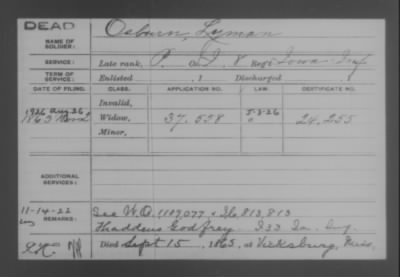 DEAD
NAME OF SOLDIER: Osburn, Lyman
SERVICE: Late rank, P. Co. I, 8 Reg't Iowa Inf
TERM OF SERVICE: Enlisted , 1 Discharged , 1
DATE OF FILING. CLASS. APPLICATION NO. LAW. CERTIFICATE NO.
Invalid,
1926 Aug 26 5-3-26
1863 Widow, 37,538 24,255
Minor,
ADDITIONAL SERVICES:
11-14-22 See W.O. 1197,077 & 813,813
REMARKS: Thaddeus Godfrey I33 Ia. Inf.
Died Sept 15, 1863, at Vicksburg, Miss,